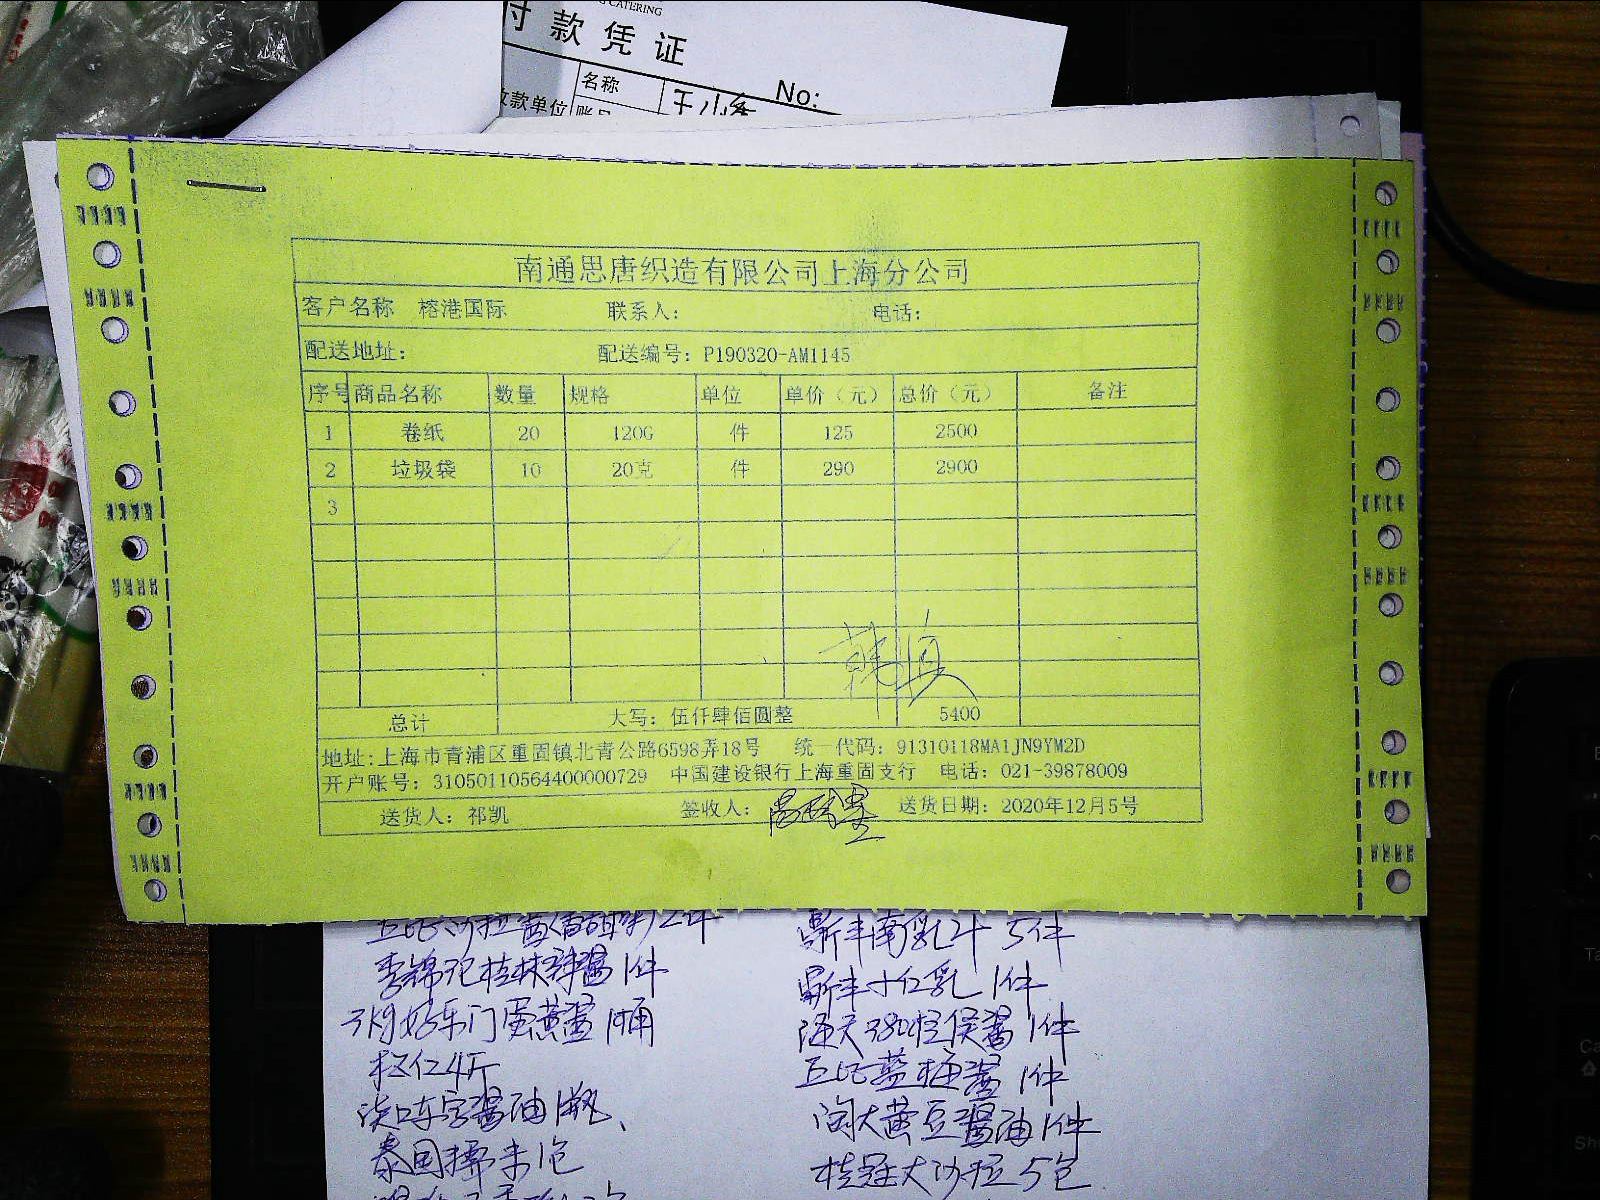 CATERING
付款凭证
名称
No:
收款单位
南通思唐织造有限公司上海分公司
客户名称 榕港国际 联系人: 电话:
配送地址: 配送编号: P190320-AM1145
序号 商品名称 数量 规格 单位 单价（元） 总价（元） 备注
1 卷纸 20 120G 件 125 2500
2 垃圾袋 10 20克 件 290 2900
3
总计 大写: 伍仟肆佰圆整 5400
地址:上海市青浦区重固镇北青公路6598弄18号 统一代码: 91310118MA1JN9YM2D
开户账号: 31050110564400000729 中国建设银行上海重固支行 电话: 021-39878009
送货人: 祁凯 签收人: 送货日期: 2020年12月5号
2件 5件
李锦记桂林辣酱1件 1件
3kg好乐门蛋黄酱1桶 海天380柱侯酱1件
松仁4斤 蓝梅酱1件
酱油1瓶 淘大黄豆酱油1件
泰国 1包 桂冠大沙拉5包